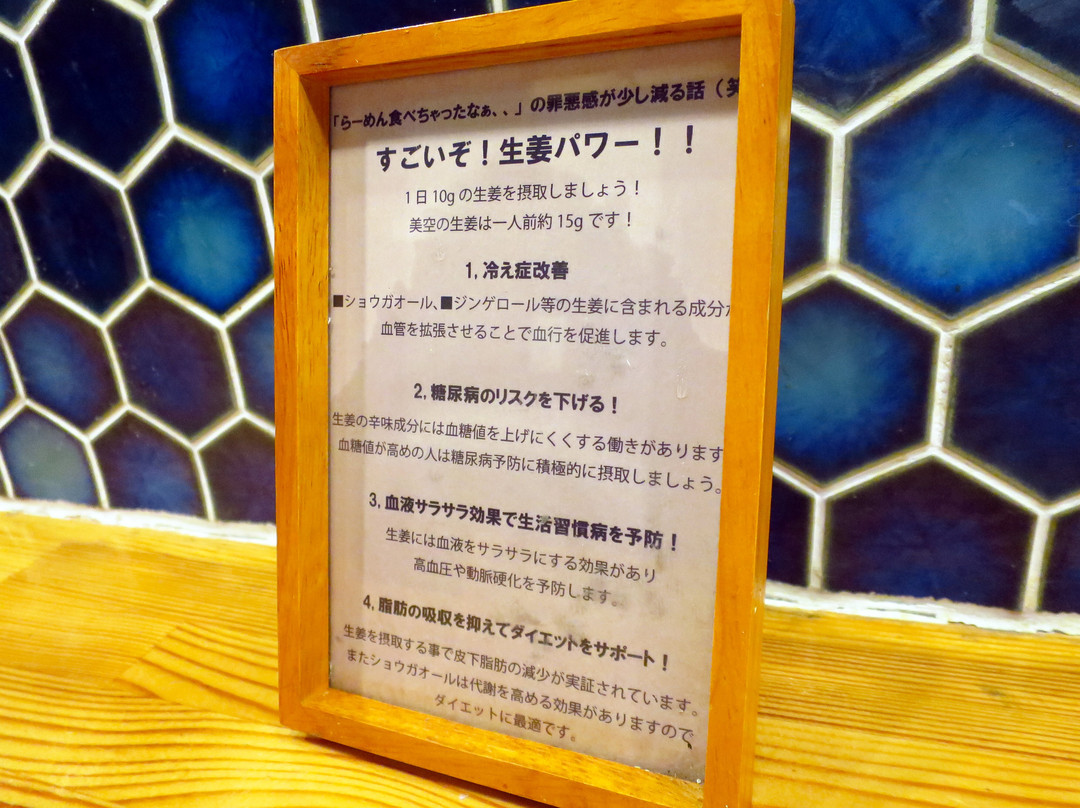 「らーめん食べちゃったなぁ、、」の罪悪感が少し減る話（笑
すごいぞ！生姜パワー！！
1日10gの生姜を摂取しましょう！
美空の生姜は一人前約15gです！
1, 冷え症改善
■ショウガオール、■ジンゲロール等の生姜に含まれる成分が
血管を拡張させることで血行を促進します。
2, 糖尿病のリスクを下げる！
生姜の辛味成分には血糖値を上げにくくする働きがあります
血糖値が高めの人は糖尿病予防に積極的に摂取しましょう。
3, 血液サラサラ効果で生活習慣病を予防！
生姜には血液をサラサラにする効果があり
高血圧や動脈硬化を予防します。
4, 脂肪の吸収を抑えてダイエットをサポート！
生姜を摂取する事で皮下脂肪の減少が実証されています。
またショウガオールは代謝を高める効果がありますので
ダイエットに最適です。